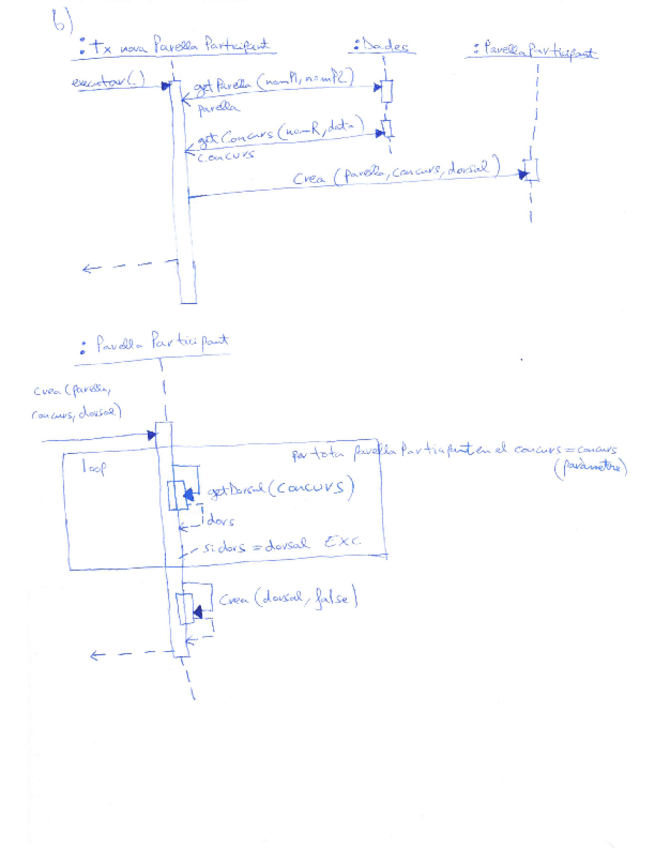 b)
: Tx nova Parella Participant
: Dades
: ParellaParticipant
executar()
getParella (nomP1, nomP2)
parella
getConcurs (nomR, data)
concurs
Crea (parella, concurs, dorsal)
: Parella Participant
crea (parella,
concurs, dorsal)
loop
per tota parella Participant en el concurs = concurs
(paràmetre)
getDorsal (concurs)
dors
si dors = dorsal Exc.
crea (dorsal, false)